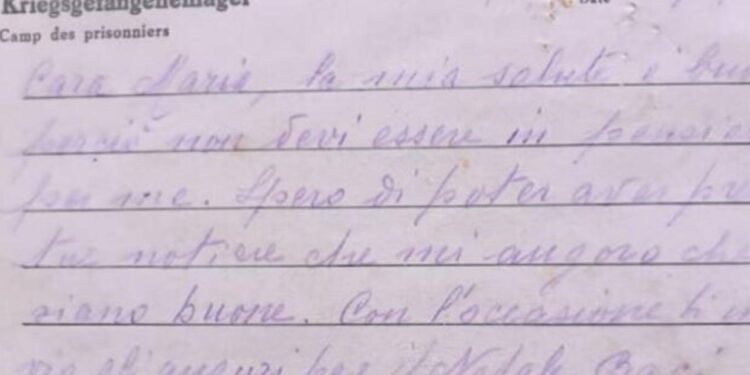 Kriegsgefangenenlager
Date
Camp des prisonniers
Cara Maria, la mia salute è buo
perciò non devi essere in pensie
per me. Spero di poter aver pre
tue notizie che mi auguro che
siano buone. Con l'occasione ti in
vio gli auguri per il Natale. Baci